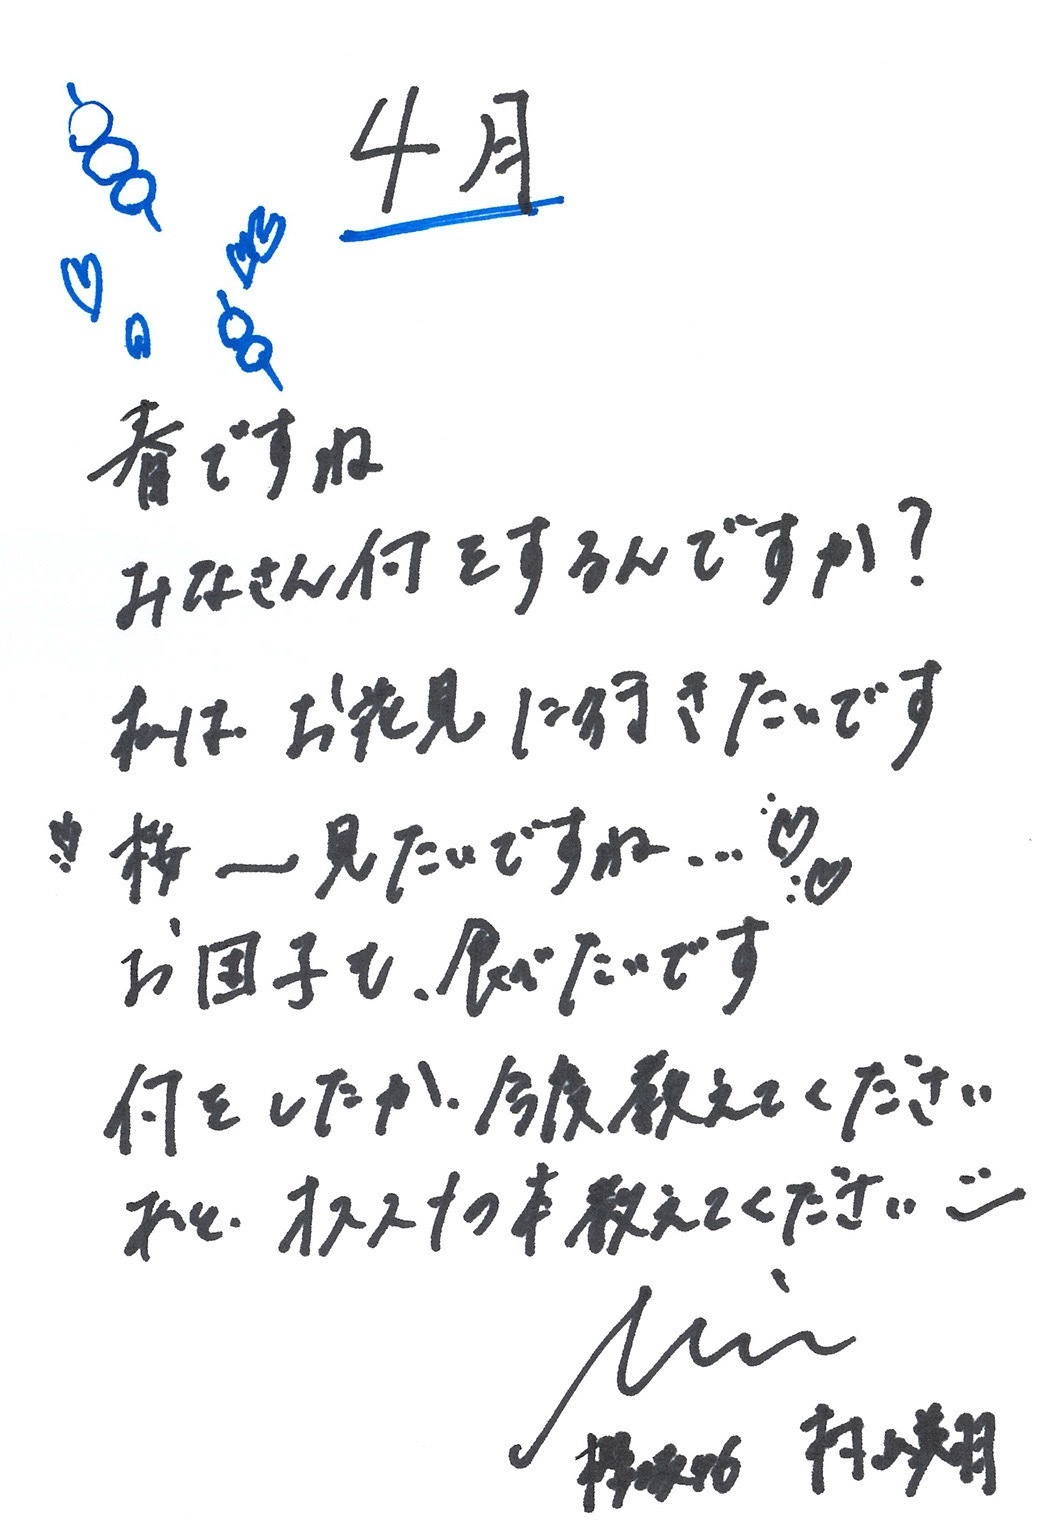 4月
春ですね
みなさん何をするんですか?
私は、お花見に行きたいです
桜〜見たいですね...
お団子も、食べたいです
何をしたか、今度教えてください
あと、オススメの本教えてください
Miu
櫻坂46 村山美羽